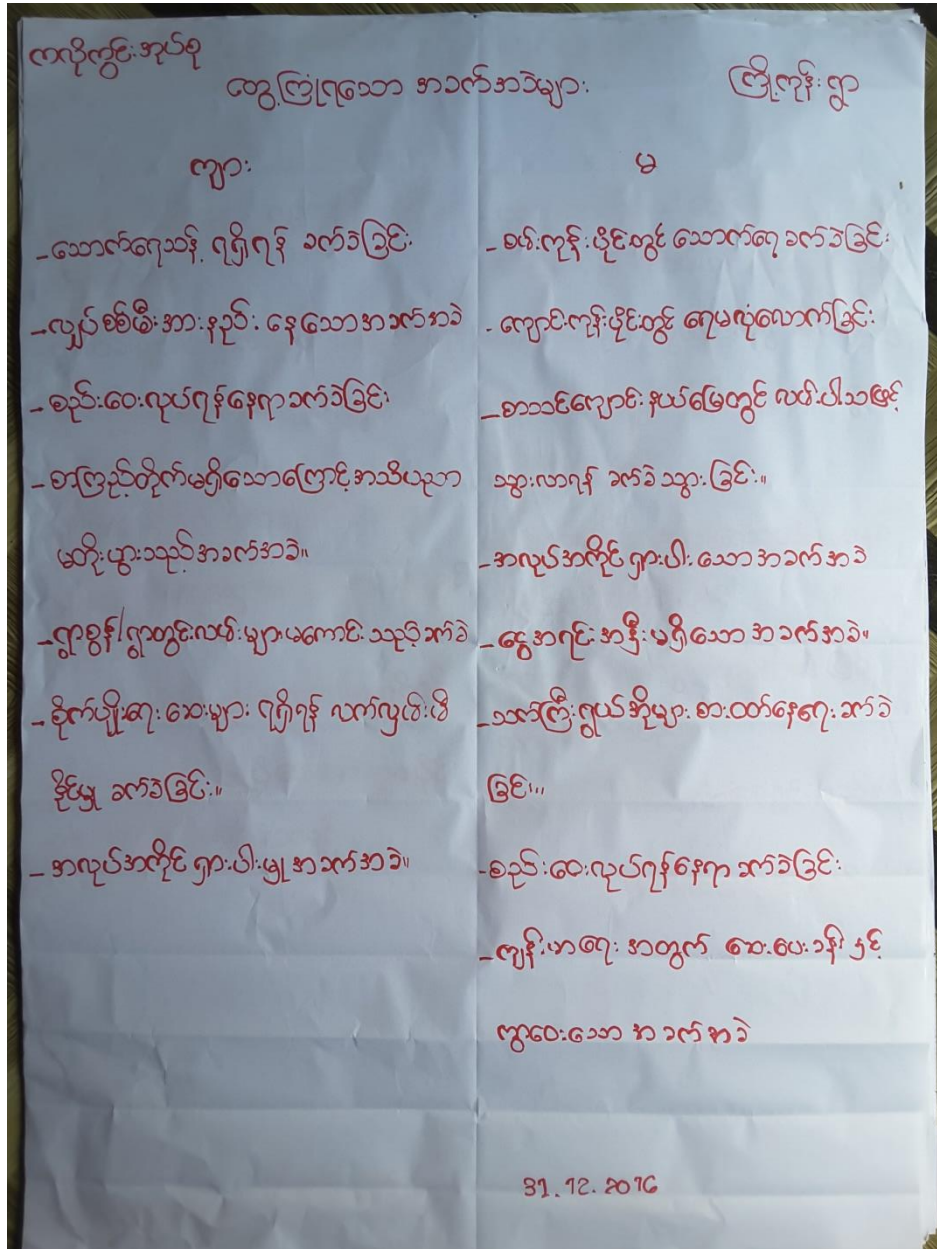 ကလိုကွင်းအုပ်စု
တွေ့ကြုံရသော အခက်အခဲများ
ကြို့ကုန်းရွာ
ကျား
-သောက်ရေသန့် ရရှိရန် ခက်ခဲခြင်း
-လျှပ်စစ်မီးအားနည်း နေသောအခက်အခဲ
-စည်းဝေးလုပ်ရန်နေရာခက်ခဲခြင်း
-စာကြည့်တိုက်မရှိသောကြောင့်အသိပညာ
မတိုးပွားသည့်အခက်အခဲ။
-ရွာစွန်/ရွာတွင်းလမ်းများမကောင်းသည့်ခက်ခဲ
-စိုက်ပျိုးရေးဆေးများ ရရှိရန် လက်လှမ်းမီ
နိုင်မှု ခက်ခဲခြင်း။
-အလုပ်အကိုင် ရှားပါးမှု အခက်အခဲ။
မ
-စမ်းကုန်းပိုင်းတွင် သောက်ရေ ခက်ခဲခြင်း
-ကျောင်းကုန်းပိုင်းတွင် ရေမလုံလောက်ခြင်း
-စာသင်ကျောင်းနယ်မြေတွင် လမ်းပါသဖြင့်
သွားလာရန် ခက်ခဲသွားခြင်း။
-အလုပ်အကိုင်ရှားပါးသောအခက်အခဲ
-ငွေအရင်းအနှီးမရှိသောအခက်အခဲ။
-သက်ကြီးရွယ်အိုများ စားဝတ်နေရေးခက်ခဲ
ခြင်း။
-စည်းဝေးလုပ်ရန်နေရာ ခက်ခဲခြင်း
-ကျန်းမာရေး အတွက် ဆေးပေးခန်းနှင့်
ကွာဝေးသော အခက်အခဲ
31.12.2016